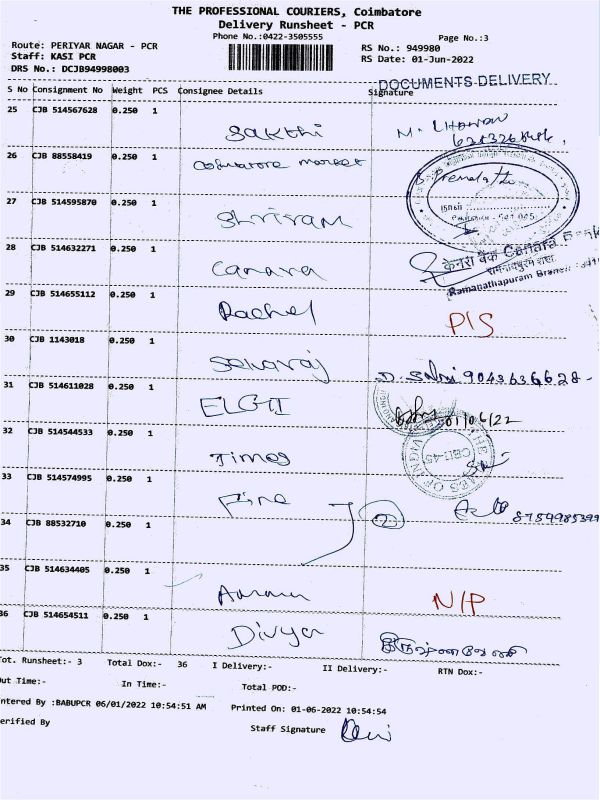 THE PROFESSIONAL COURIERS, Coimbatore
Delivery Runsheet - PCR
Phone No.:0422-3505555
Page No.:3
Route: PERIYAR NAGAR - PCR
RS No.: 949980
Staff: KASI PCR
RS Date: 01-Jun-2022
DRS No.: DCJB94998003
DOCUMENTS DELIVERY
S No Consignment No Weight PCS Consignee Details Signature
25 CJB 514567628 0.250 1
Sakthi
26 CJB 88558419 0.250 1
Coimbatore market
B. Premalatha
27 CJB 514595870 0.250 1
Shriram
28 CJB 514632271 0.250 1
Canara
केनरा बैंक Canara Bank
रामनाथपुरम शाखा
Ramanathapuram Branch
29 CJB 514655112 0.250 1
Rachel
P/S
30 CJB 1143018 0.250 1
Selvaraj
9043636628
31 CJB 514611028 0.250 1
ELGII
01/06/22
32 CJB 514544533 0.250 1
Times
THE TIMES OF INDIA
CBE-45
33 CJB 514574995 0.250 1
Fine
8754985399
34 CJB 88532710 0.250 1
35 CJB 514634405 0.250 1
N/P
36 CJB 514654511 0.250 1
Divya
Tot. Runsheet:- 3 Total Dox:- 36 I Delivery:- II Delivery:- RTN Dox:-
Out Time:- In Time:- Total POD:-
Entered By :BABUPCR 06/01/2022 10:54:51 AM Printed On: 01-06-2022 10:54:54
Verified By Staff Signature